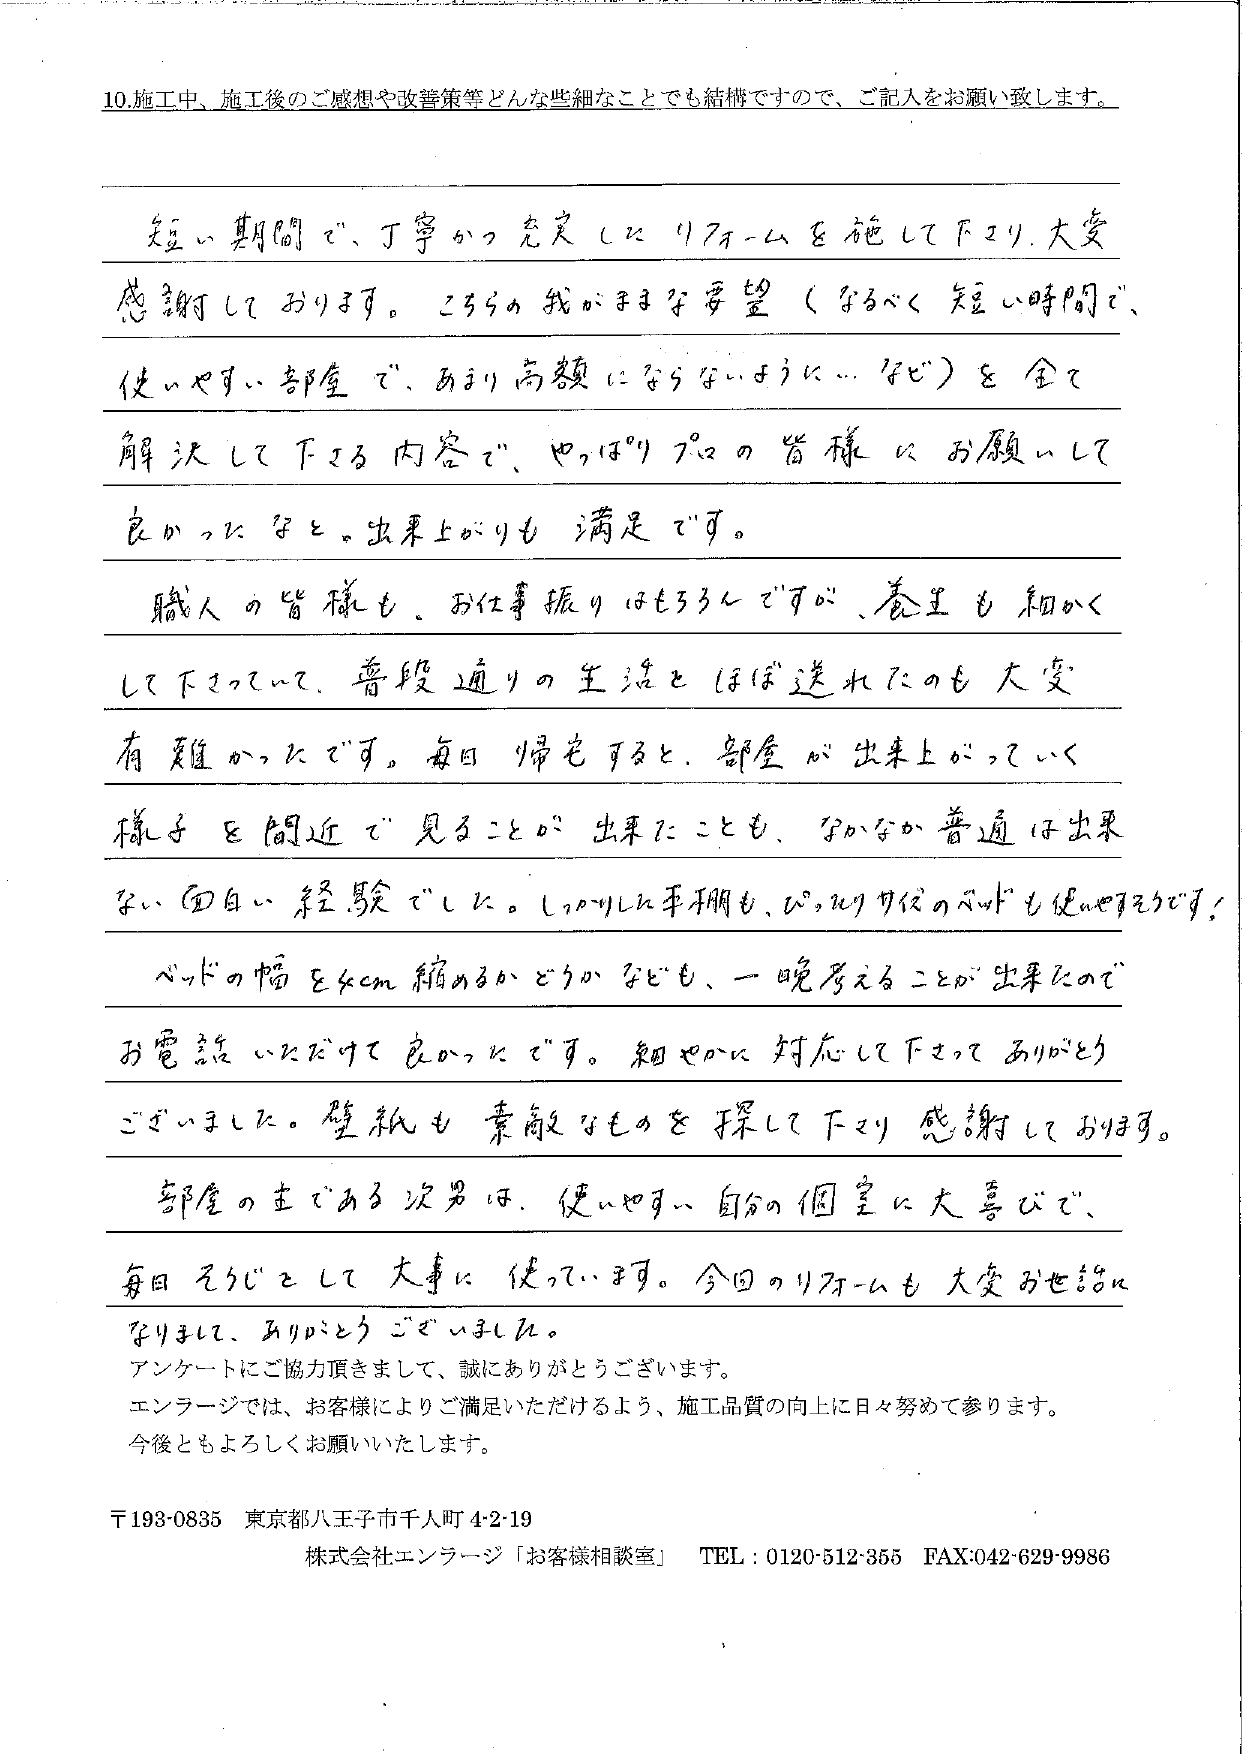 10.施工中、施工後のご感想や改善策等どんな些細なことでも結構ですので、ご記入をお願い致します。
短い期間で、丁寧かつ充実したリフォームを施して下さり、大変
感謝しております。こちらの我がままな要望(なるべく短い時間で、
使いやすい部屋で、あまり高額にならないように…など)を全て
解決して下さる内容で、やっぱりプロの皆様にお願いして
良かったなと。出来上がりも満足です。
職人の皆様も、お仕事振りはもちろんですが、養生も細かく
して下さっていて、普段通りの生活をほぼ送れたのも大変
有難かったです。毎日帰宅すると、部屋が出来上がっていく
様子を間近で見ることが出来たことも、なかなか普通は出来
ない面白い経験でした。しっかりした本棚も、ぴったりサイズのベッドも使いやすそうです!
ベッドの幅を4cm縮めるかどうかなども、一晩考えることが出来たので
お電話いただけて良かったです。細やかに対応して下さってありがとう
ございました。壁紙も素敵なものを探して下さり感謝しております。
部屋の主である次男は、使いやすい自分の個室に大喜びで、
毎日そうじをして大事に使っています。今回のリフォームも大変お世話に
なりまして、ありがとうございました。
アンケートにご協力頂きまして、誠にありがとうございます。
エンラージでは、お客様によりご満足いただけるよう、施工品質の向上に日々努めて参ります。
今後ともよろしくお願いいたします。
〒193-0835 東京都八王子市千人町4-2-19
株式会社エンラージ「お客様相談室」 TEL:0120-512-355 FAX:042-629-9986